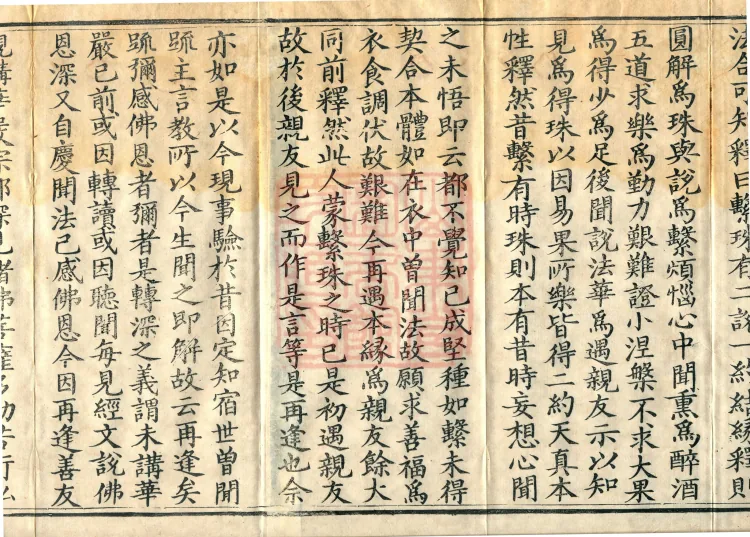 法合可知釋曰繫珠有二說一緣結緣釋則
圓解爲珠與說爲繫煩惱心中聞熏爲醉酒
五道求樂爲勤力艱難證小涅槃不求大果
爲得少爲足後聞說法華爲遇親友示以知
見爲得珠以因易果所樂皆得二約天真本
性釋然昔繫有時珠則本有昔時妄想心聞
之未悟即云都不覺知已成堅種如繫未得
契合本體如在衣中曾聞法故願求善福爲
衣食調伏故艱難今再遇本緣爲親友餘大
同前釋然此人蒙繫珠之時已是初遇親友
故於後親友見之而作是言等是再逢也余
亦如是以今現事驗於昔因定知宿世曾聞
䟽主言教所以今生聞之即解故云再逢矣
䟽彌感佛恩者彌者是轉深之義謂未講華
嚴已前或因轉讀或因聽聞每見經文說佛
恩深又自慶聞法已感佛恩今因再逢善友
見講華嚴宗部深見諸佛菩薩多劫苦行